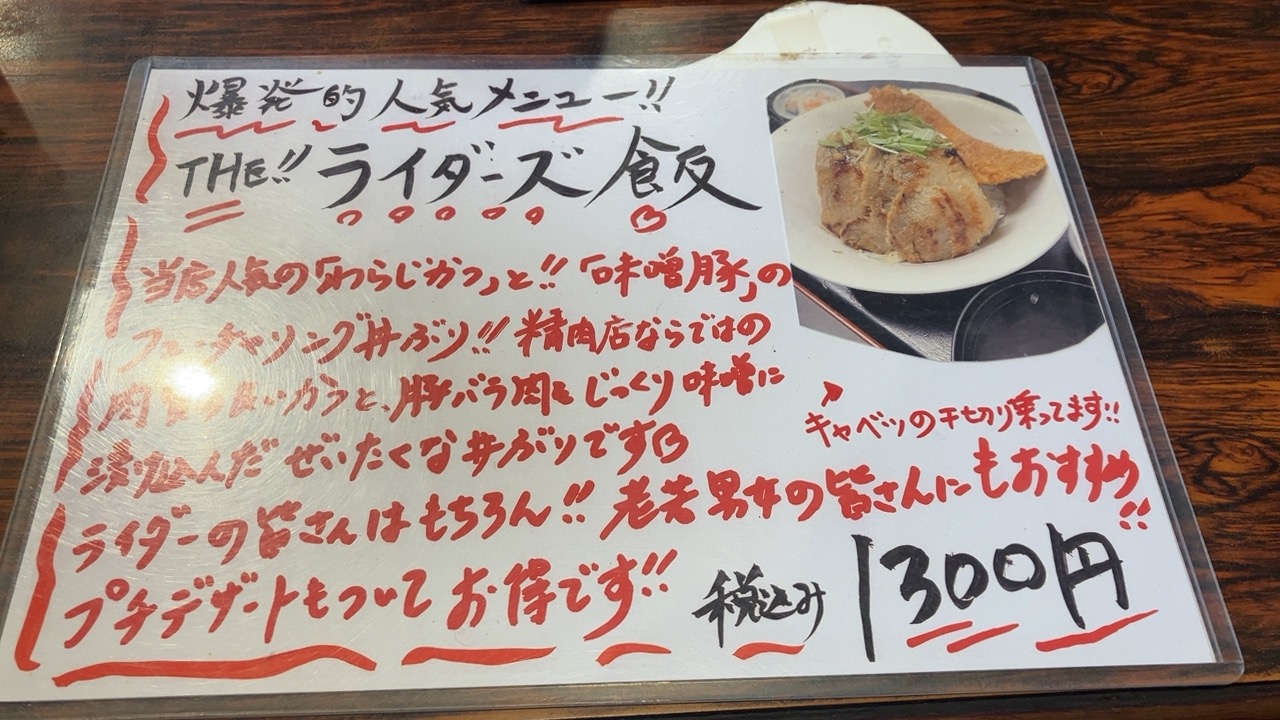 爆発的人気メニュー!!
THE!! ライダーズ飯
当店人気の「わらじかつ」と!!「味噌豚」の
フューチャリング丼ぶり!! 精肉店ならではの
肉 かつと、豚バラ肉をじっくり味噌に
漬け込んだ ぜいたくな丼ぶりです
キャベツの千切り乗ってます!!
ライダーの皆さんはもちろん!! 老若男女の皆さんにもおすすめ!!
プチデザートもついてお得です!!
税込み 1300円